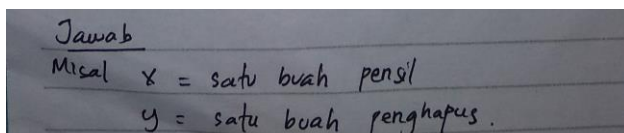 Jawab
Misal x = satu buah pensil
y = satu buah penghapus.